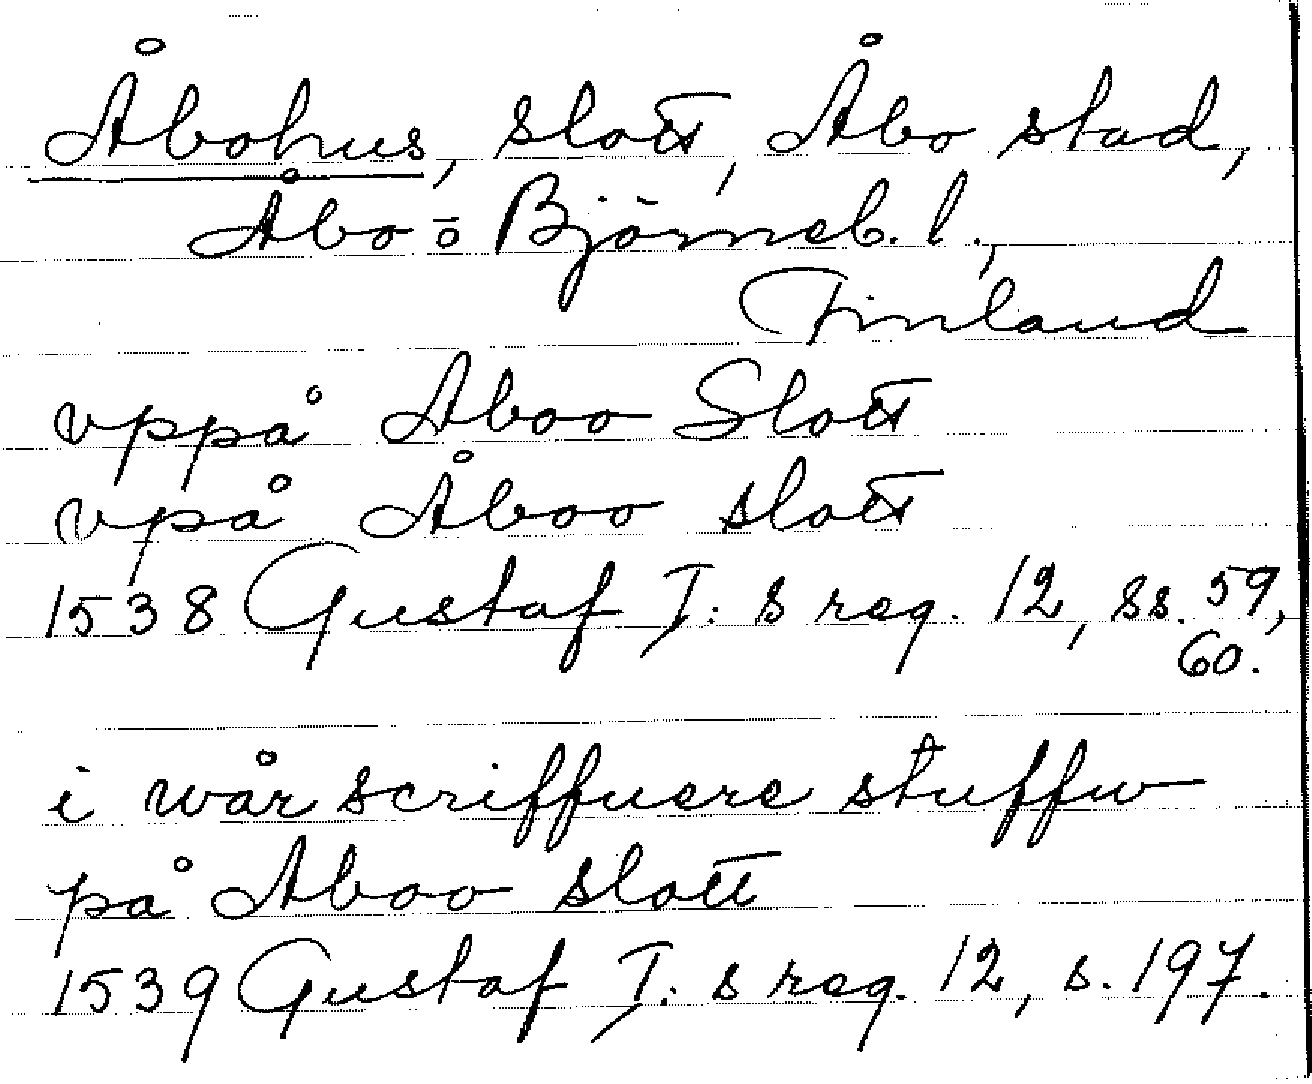 Åbohus, slott, Åbo stad,
Åbo o Björneb. l.,
Finland
vppå Aboo Slott
vpå Åboo slott
1538 Gustaf I: s reg. 12, ss. 59,
60.
i wår scriffuere stuffw
på Aboo slott
1539 Gustaf I: s reg. 12, s. 197.